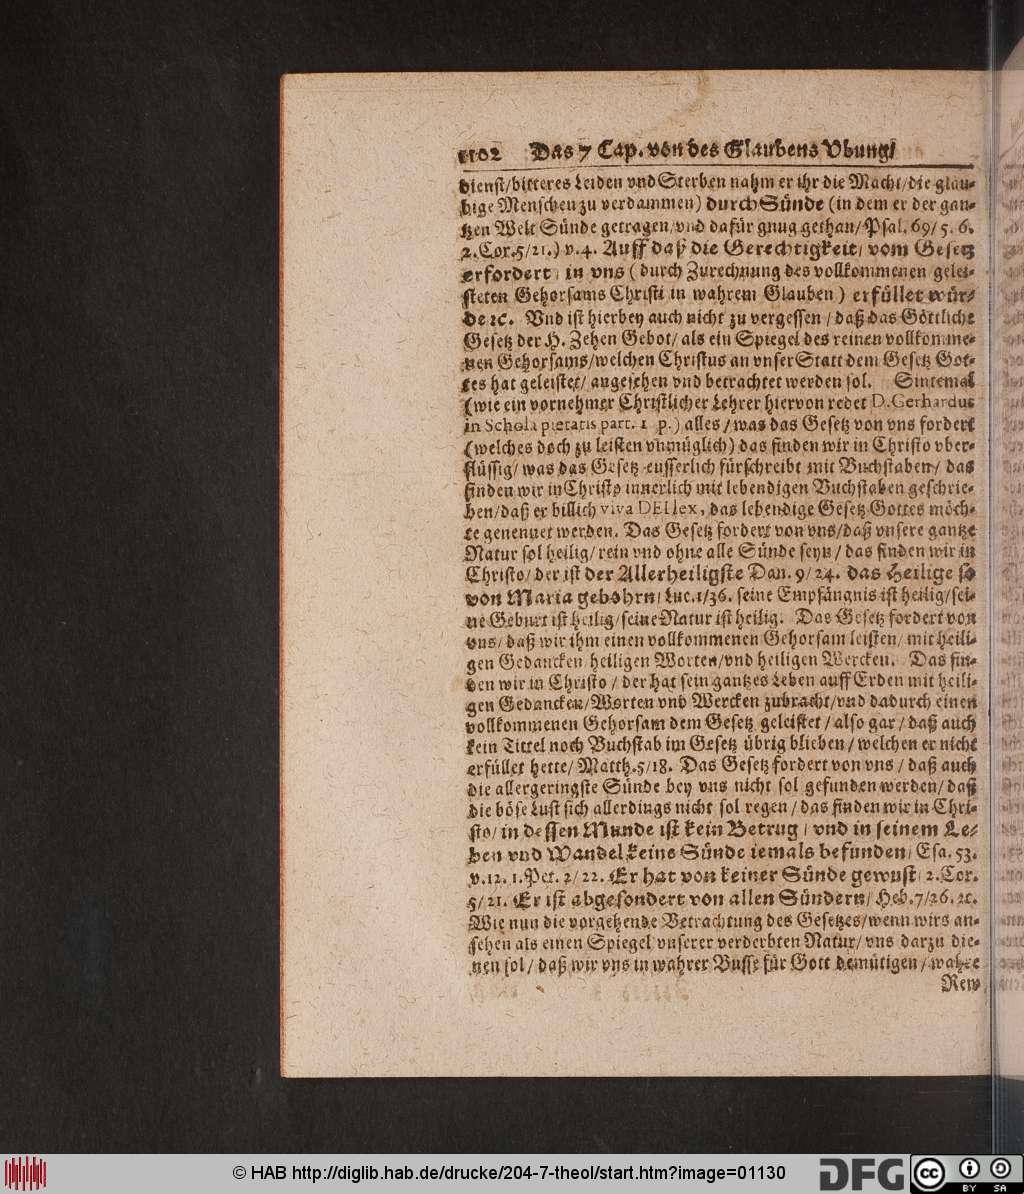 1102 Das 7 Cap. von des Glaubens Vbung/
dienst/bitteres Leiden vnd Sterben nahm er ihr die Macht/die glau-
bige Menschen zu verdammen) durch Sünde (in dem er der gan-
tzen Welt Sünde getragen/vnd dafür gnug gethan/Psal. 69/5. 6.
2. Cor. 5/21.) v. 4. Auff daß die Gerechtigkeit/ vom Gesetz
erfordert/ in vns (durch Zurechnung des vollkommenen gelei-
steten Gehorsams Christi in wahrem Glauben) erfüllet wür-
de ꝛc. Vnd ist hierbey auch nicht zu vergessen/daß das Göttliche
Gesetz der H. Zehen Gebot/als ein Spiegel des reinen vollkomme-
nen Gehorsams/welchen Christus an vnser Statt dem Gesetz Got-
tes hat geleistet/angesehen vnd betrachtet werden sol. Sintemal
(wie ein vornehmer Christlicher Lehrer hiervon redet D. Gerhardus
in Schola pietatis part. 1 p.) alles/was das Gesetz von vns fordert
(welches doch zu leisten vnmüglich) das finden wir in Christo vber-
flüssig/was das Gesetz eusserlich fürschreibt mit Buchstaben/ das
finden wir in Christo innerlich mit lebendigen Buchstaben geschrie-
ben/daß er billich viva DEI lex, das lebendige Gesetz Gottes möch-
te genennet werden. Das Gesetz fordert von vns/daß vnsere gantze
Natur sol heilig/rein vnd ohne alle Sünde seyn/das finden wir in
Christo/der ist der Allerheiligste Dan. 9/24. das Heilige so
von Maria gebohrn/Luc. 1/36. seine Empfängnis ist heilig/sei-
ne Geburt ist heilig/seine Natur ist heilig. Das Gesetz fordert von
vns/daß wir ihm einen vollkommenen Gehorsam leisten/mit heili-
gen Gedancken/heiligen Worten/vnd heiligen Wercken. Das fin-
den wir in Christo/der hat sein gantzes Leben auff Erden mit heili-
gen Gedancken/Worten vnd Wercken zubracht/vnd dadurch einen
vollkommenen Gehorsam dem Gesetz geleistet/also gar/daß auch
kein Tittel noch Buchstab im Gesetz übrig blieben/welchen er nicht
erfüllet hette/Matth. 5/18. Das Gesetz fordert von vns/daß auch
die allergeringste Sünde bey vns nicht sol gefunden werden/daß
die böse Lust sich allerdings nicht sol regen/das finden wir in Chri-
sto/in dessen Munde ist kein Betrug/ vnd in seinem Le-
ben vnd Wandel keine Sünde iemals befunden/Esa. 53.
v. 12. 1. Pet. 2/22. Er hat von keiner Sünde gewust/2. Cor.
5/21. Er ist abgesondert von allen Sündern/Heb. 7/26. ꝛc.
Wie nun die vorgehende Betrachtung des Gesetzes/wenn wirs an-
sehen als einen Spiegel vnserer verderbten Natur/vns darzu die-
nen sol/daß wir vns in wahrer Busse für Gott demütigen/wahre
Rew
© HAB http://diglib.hab.de/drucke/204-7-theol/start.htm?image=01130
DFG
cc BY SA